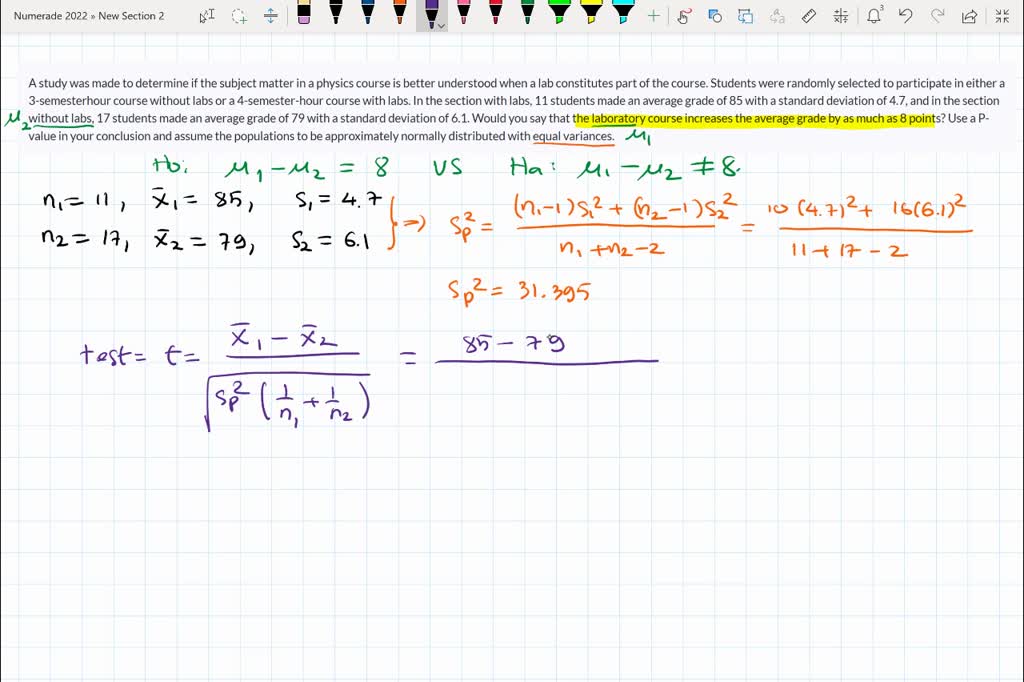 Numerade 2022 » New Section 2
3
A study was made to determine if the subject matter in a physics course is better understood when a lab constitutes part of the course. Students were randomly selected to participate in either a
3-semesterhour course without labs or a 4-semester-hour course with labs. In the section with labs, 11 students made an average grade of 85 with a standard deviation of 4.7, and in the section
μ2 without labs, 17 students made an average grade of 79 with a standard deviation of 6.1. Would you say that the laboratory course increases the average grade by as much as 8 points? Use a P-
value in your conclusion and assume the populations to be approximately normally distributed with equal variances. μ1
Ho: μ1 - μ2 = 8 VS Ha: μ1 - μ2 ≠ 8.
n1 = 11, x̄1 = 85, S1 = 4.7
n2 = 17, x̄2 = 79, S2 = 6.1
} ⇒ Sp² = (n1-1)S1² + (n2-1)S2² / n1+n2-2 = 10(4.7)² + 16(6.1)² / 11+17-2
Sp² = 31.395
test = t = x̄1 - x̄2 / √Sp² (1/n1 + 1/n2) = 85 - 79